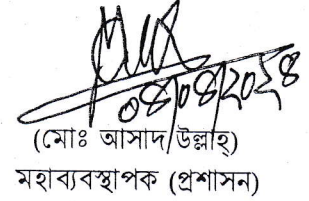 ০৪/০৪/২০২৪
(মোঃ আসাদ উল্লাহ্)
মহাব্যবস্থাপক (প্রশাসন)